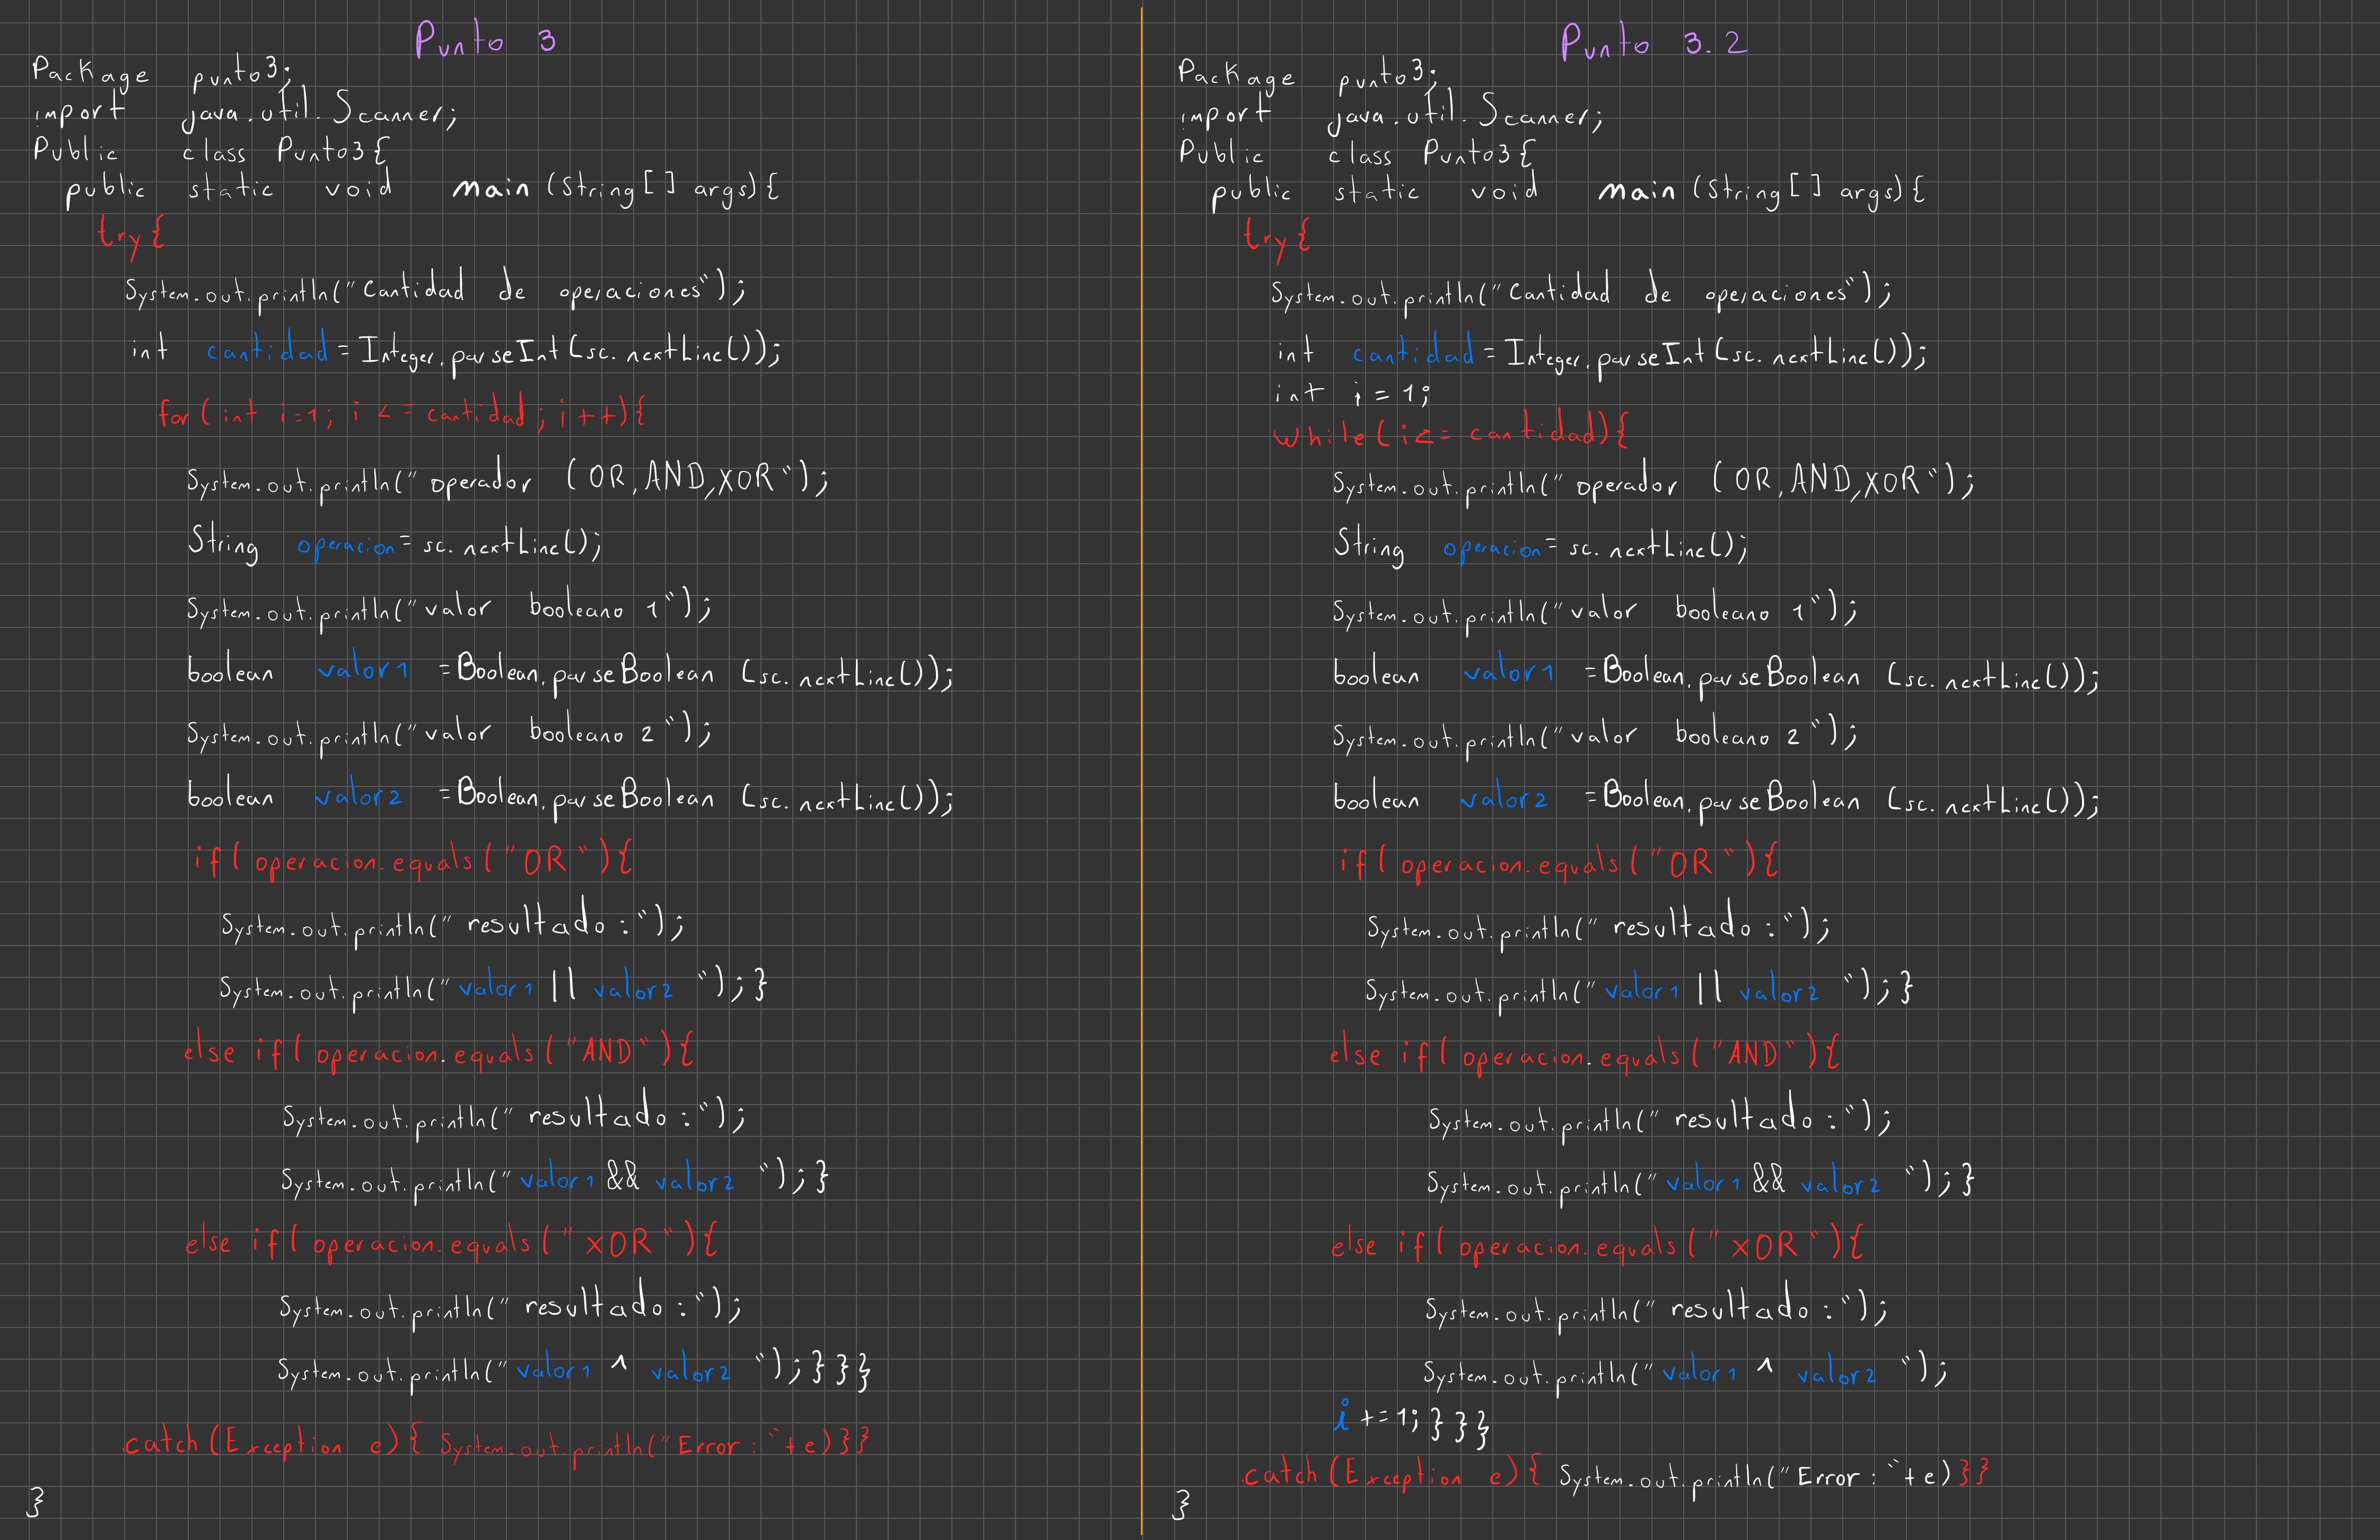 Punto 3
Package punto3;
import java.util.Scanner;
Public class Punto3{
public static void main (String[] args){
try{
System.out.println("Cantidad de operaciones");
int cantidad = Integer.parseInt(sc.nextLine());
for(int i=1; i <= cantidad; i++){
System.out.println("operador (OR,AND,XOR");
String operacion = sc.nextLine();
System.out.println("valor booleano 1");
boolean valor1 = Boolean.parseBoolean (sc.nextLine());
System.out.println("valor booleano 2");
boolean valor2 = Boolean.parseBoolean (sc.nextLine());
if( operacion.equals("OR"){
System.out.println("resultado:");
System.out.println("valor1 || valor2 ");}
else if( operacion.equals("AND"){
System.out.println("resultado:");
System.out.println("valor1 && valor2 ");}
else if( operacion.equals("XOR"){
System.out.println("resultado:");
System.out.println("valor1 ^ valor2 ");}}}
catch(Exception e){ System.out.println("Error:"+e)}}
}
Punto 3.2
Package punto3;
import java.util.Scanner;
Public class Punto3{
public static void main (String[] args){
try{
System.out.println("Cantidad de operaciones");
int cantidad = Integer.parseInt(sc.nextLine());
int i = 1;
while(i<= cantidad){
System.out.println("operador (OR,AND,XOR");
String operacion = sc.nextLine();
System.out.println("valor booleano 1");
boolean valor1 = Boolean.parseBoolean (sc.nextLine());
System.out.println("valor booleano 2");
boolean valor2 = Boolean.parseBoolean (sc.nextLine());
if( operacion.equals("OR"){
System.out.println("resultado:");
System.out.println("valor1 || valor2 ");}
else if( operacion.equals("AND"){
System.out.println("resultado:");
System.out.println("valor1 && valor2 ");}
else if( operacion.equals("XOR"){
System.out.println("resultado:");
System.out.println("valor1 ^ valor2 ");
i +=1;}}}
catch(Exception e){ System.out.println("Error:"+e)}}
}